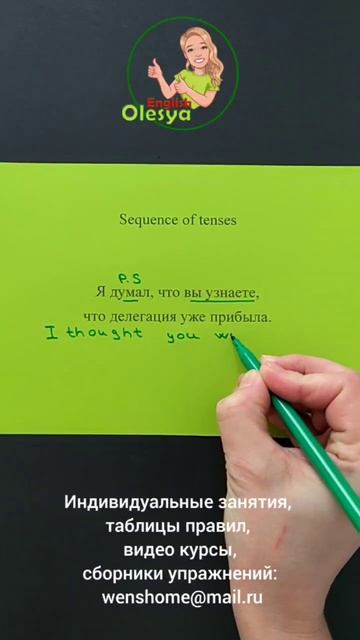 English
Olesya
Sequence of tenses
P.S
Я думал, что вы узнаете,
что делегация уже прибыла.
I thought you w
Индивидуальные занятия,
таблицы правил,
видео курсы,
сборники упражнений:
wenshome@mail.ru